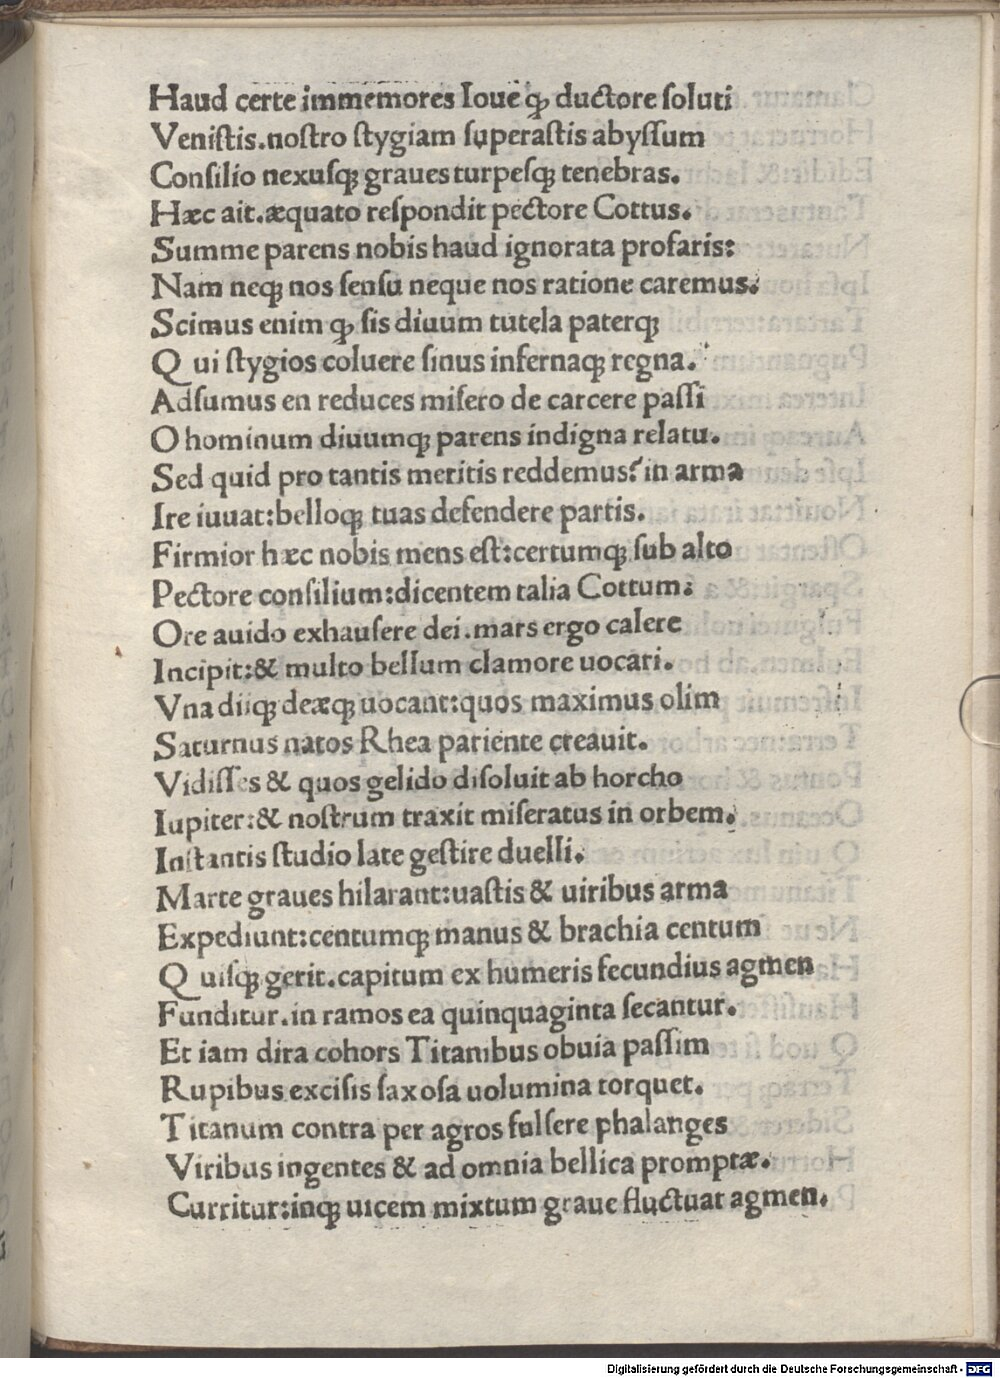 Haud certe immemores Ioue ꝙ ductore ſoluti
Veniſtis.noſtro ſtygiam ſuperaſtis abyſſum
Conſilio nexuſqꝫ graues turpeſqꝫ tenebras.
Hæc ait.æquato reſpondit pectore Cottus.
Summe parens nobis haud ignorata profaris:
Nam neqꝫ nos ſenſu neque nos ratione caremus.
Scimus enim ꝙ ſis diuum tutela paterqꝫ
Q ui ſtygios coluere ſinus infernaqꝫ regna.
Adſumus en reduces miſero de carcere paſſi
O hominum diuumqꝫ parens indigna relatu.
Sed quid pro tantis meritis reddemus? in arma
Ire iuuat:belloqꝫ tuas defendere partis.
Firmior hæc nobis mens eſt:certumqꝫ ſub alto
Pectore conſilium:dicentem talia Cottum:
Ore auido exhauſere dei.mars ergo calere
Incipit:& multo bellum clamore uocari.
Vna diiqꝫ deæqꝫ uocant:quos maximus olim
Saturnus natos Rhea pariente creauit.
Vidiſſes & quos gelido diſoluit ab horcho
Iupiter:& noſtrum traxit miſeratus in orbem.
Inſtantis ſtudio late geſtire duelli.
Marte graues hilarant:uaſtis & uiribus arma
Expediunt:centumqꝫ manus & brachia centum
Q uiſqꝫ gerit.capitum ex humeris fecundius agmen
Funditur.in ramos ea quinquaginta ſecantur.
Et iam dira cohors Titanibus obuia paſſim
Rupibus exciſis ſaxoſa uolumina torquet.
Titanum contra per agros fulſere phalanges
Viribus ingentes & ad omnia bellica promptæ.
Curritur:inqꝫ uicem mixtum graue fluctuat agmen.
Digitalisierung gefördert durch die Deutsche Forschungsgemeinschaft - DFG